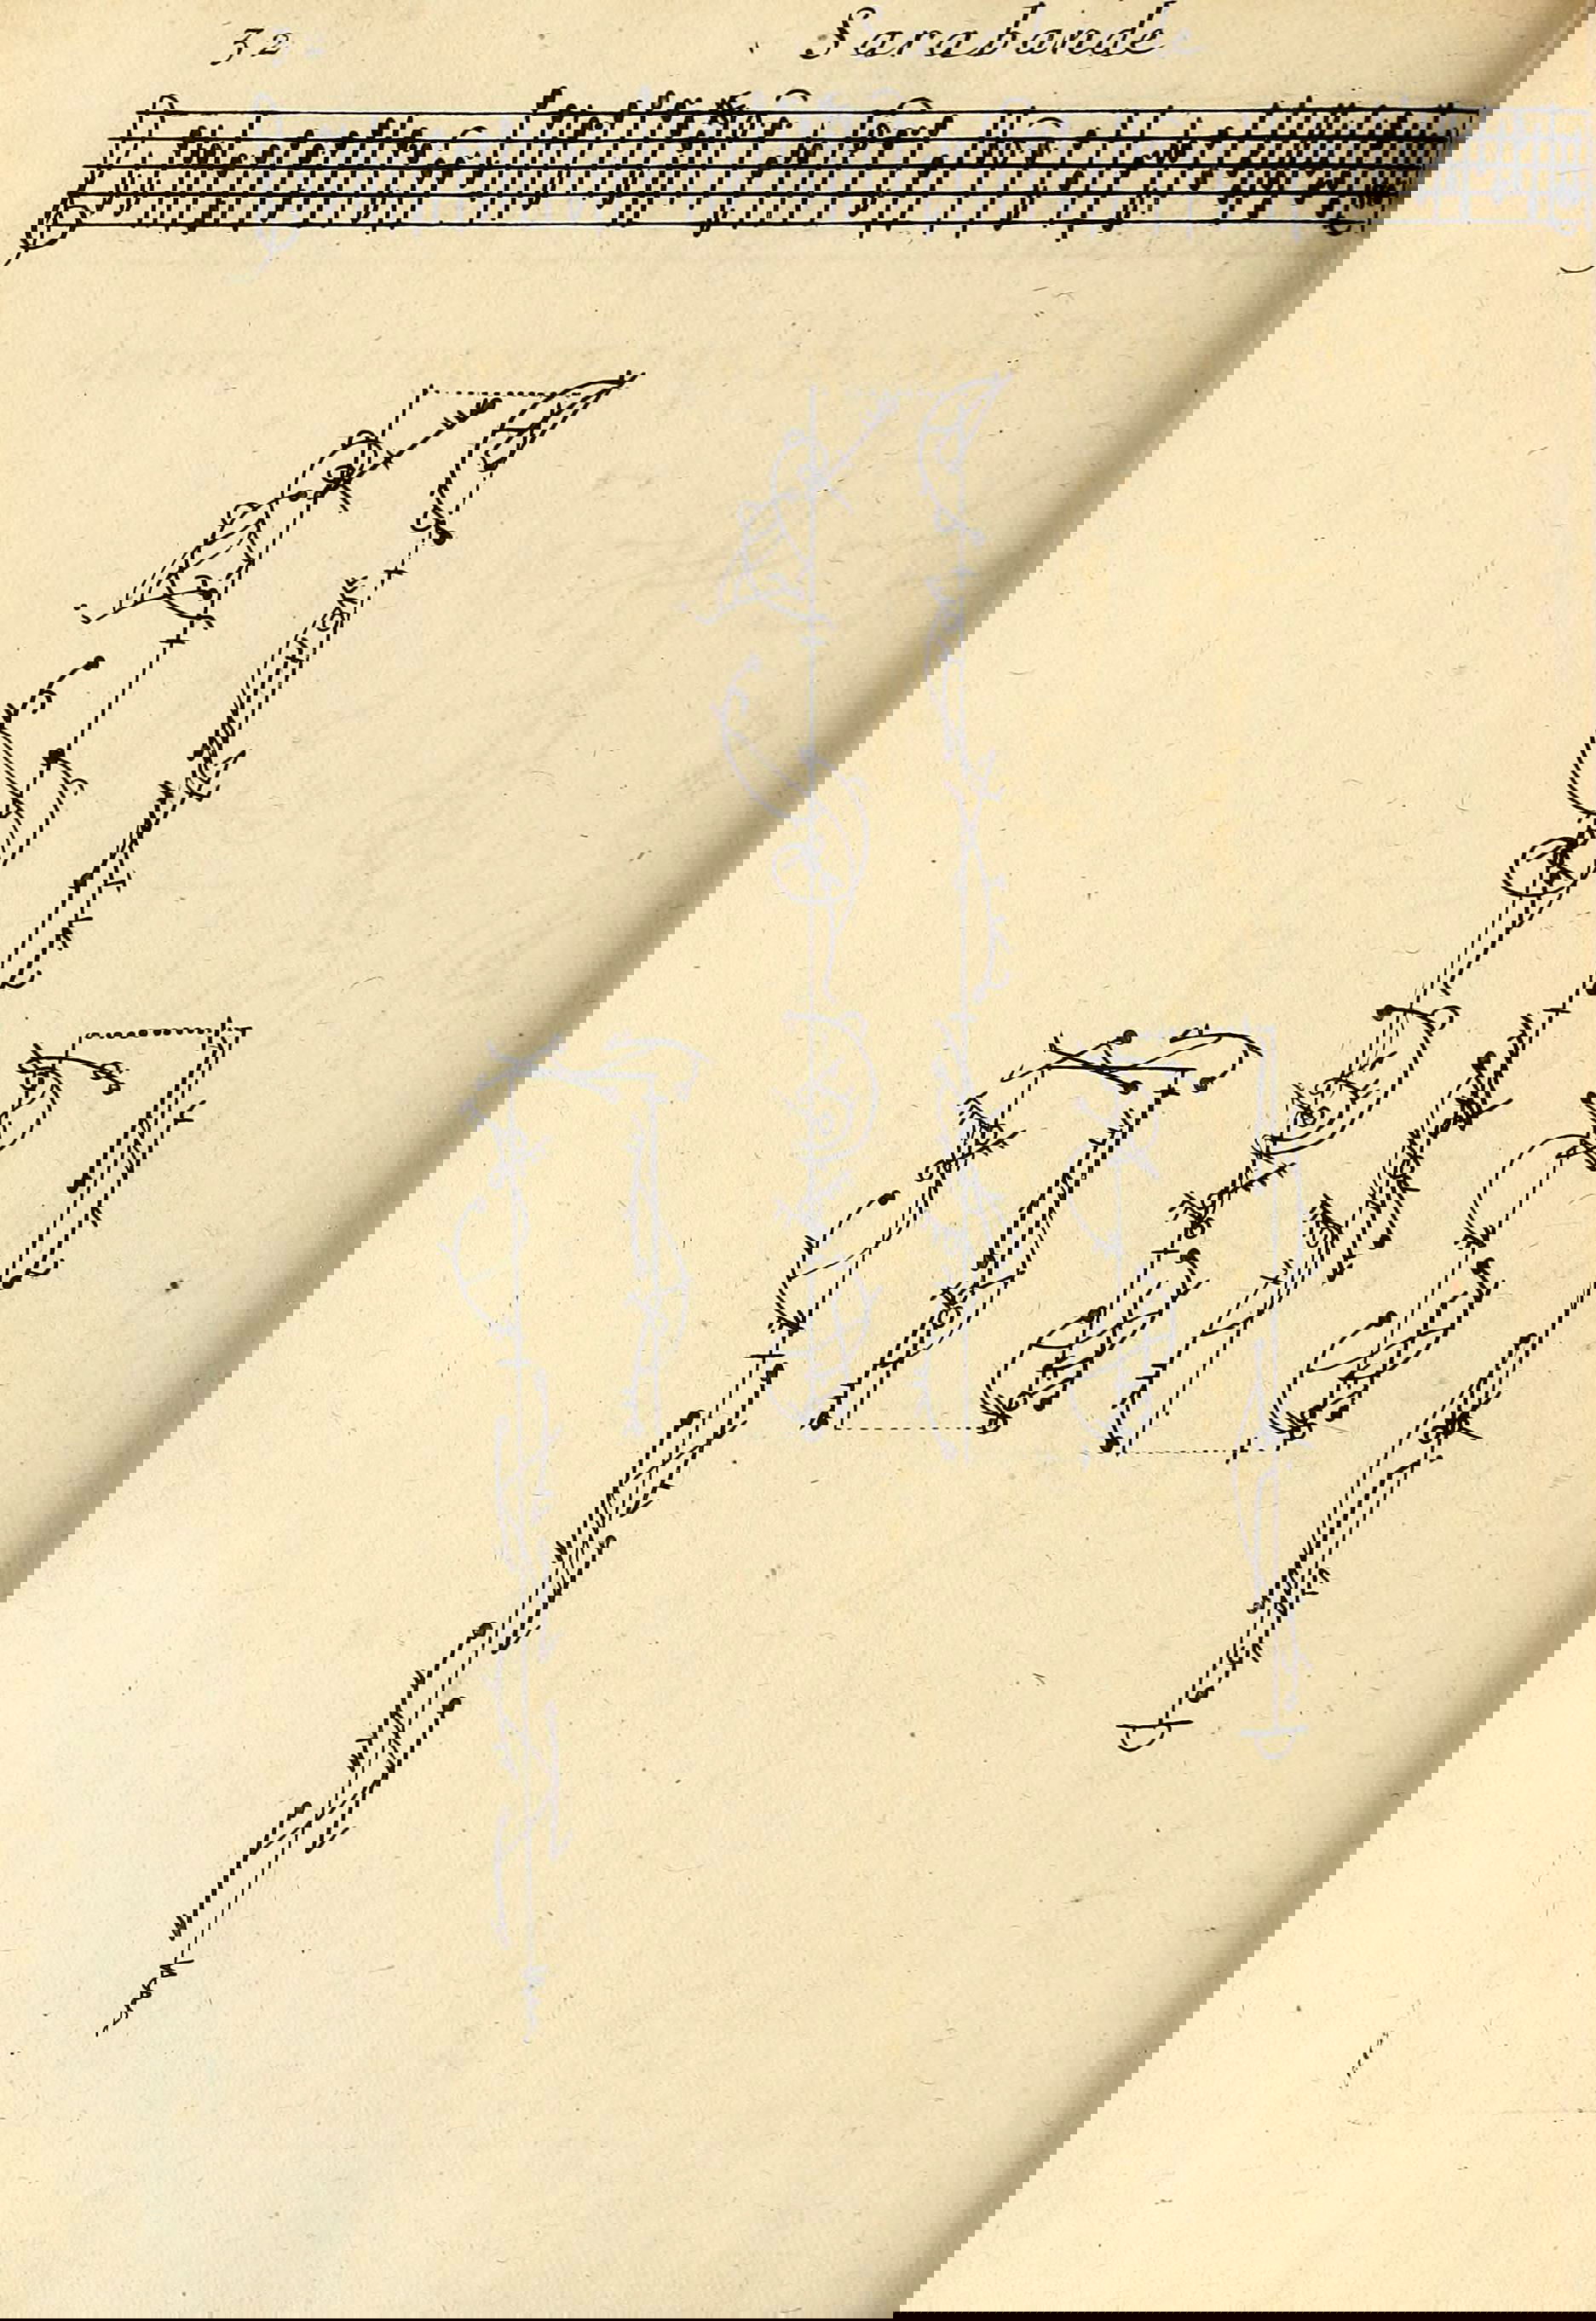 52 Sarabande